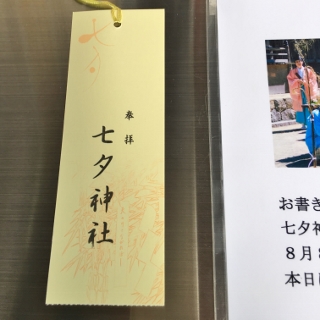 七夕
奉拝
七夕神社
お書き
七夕神
8月
本日